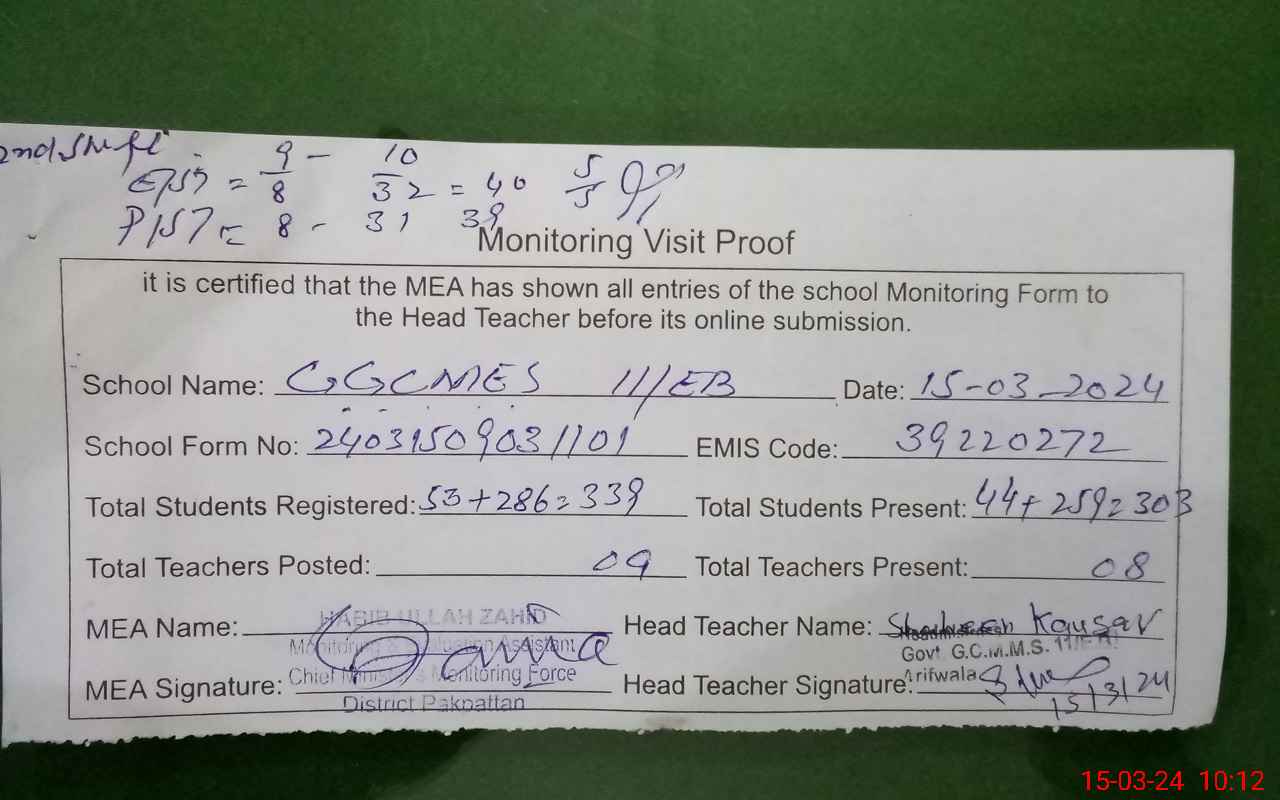 2nd Shift
9 - 10
8 32 = 40 5/5
8 - 31 39
Monitoring Visit Proof
it is certified that the MEA has shown all entries of the school Monitoring Form to
the Head Teacher before its online submission.
School Name: GGCMES 111/EB Date: 15-03-2024
School Form No: 2403150903 1101 EMIS Code: 39220272
Total Students Registered: 53+286=339 Total Students Present: 44+259=303
Total Teachers Posted: 09 Total Teachers Present: 08
MEA Name: HABIB ULLAH ZAHID Head Teacher Name: Kausar
Monitoring & Evaluation Assistant Govt G.C.M.M.S.
MEA Signature: Chief Minister's Monitoring Force Head Teacher Signature: Arifwala
District Pakpattan 15/3/24
15-03-24 10:12